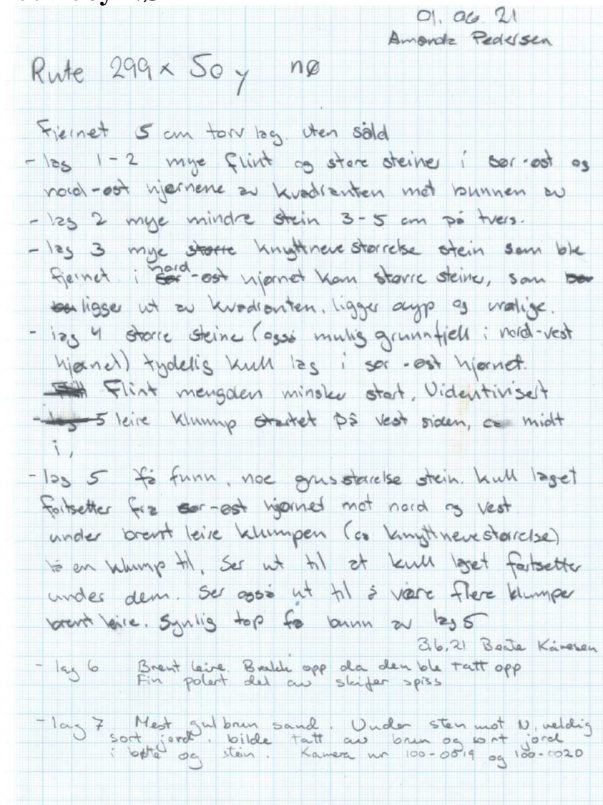 01.06.21
Amanda Pedersen
Rute 299x 50y nø
Fjernet 5 cm torv lag. uten såld
- lag 1-2 mye flint og store steiner i sør-øst og
nord-øst hjørnene av kvadranten mot bunnen av
- lag 2 mye mindre stein 3-5 cm på tvers.
- lag 3 mye større knyttneve størrelse stein som ble
fjernet. i nord-øst hjørnet kom større steiner, som
ligger ut av kvadranten, ligger dyp og
- lag 4 større steine (også mulig grunnfjell i nord-vest
hjørnet) tydelig kull lag i sør-øst hjørnet.
Flint mengden minsker stort,
5 leire klump startet på vest siden, ca midt
i,
- lag 5 få funn, noe grusstørrelse stein. kull laget
fortsetter fra sør-øst hjørnet mot nord og vest
under brent leire klumpen (ca knyttnevestørrelse)
en klump til, Ser ut til at kull laget fortsetter
under dem. Ser også ut til å være flere klumper
brent leire. Synlig top få bunn av lag 5
3.6.21 Beate Kåresen
- lag 6 Brent leire. Brakk opp da den ble tatt opp
Fin polert del av skifer spiss
- lag 7 Mest gulbrun sand. Under sten mot N, veldig
sort jord. bilde tatt av brun og sort jord
i og stein. Kamera nr 100-0019 og 100-0020